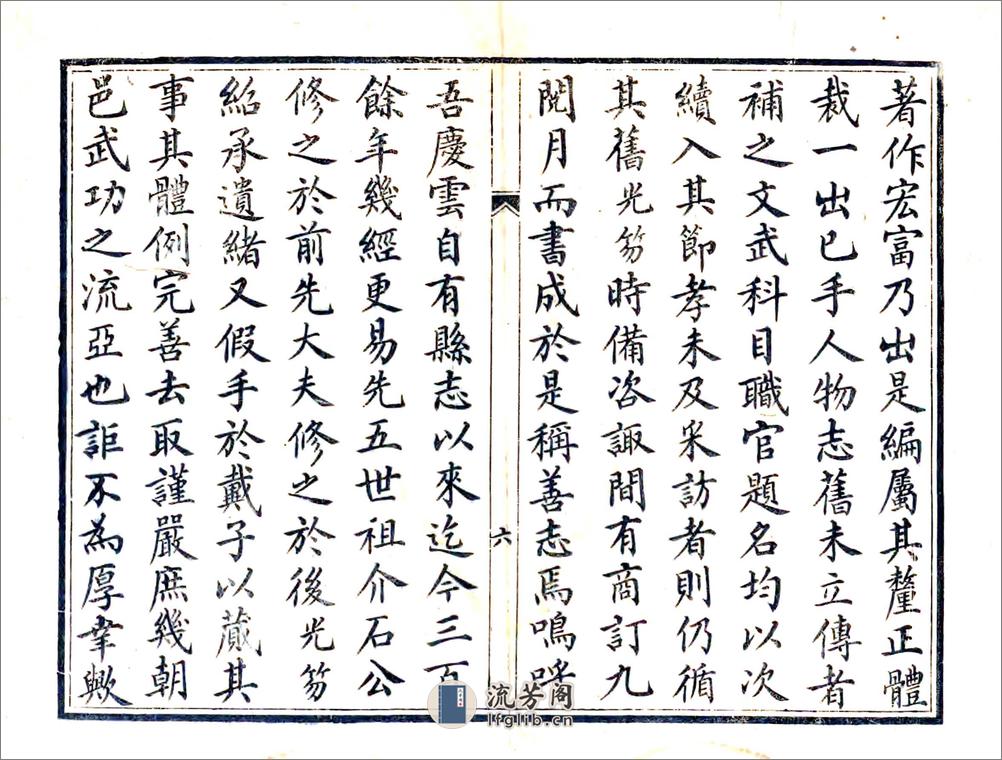 著作宏富乃出是編屬其釐正體
裁一出已手人物志舊未立傳者
補之文武科目職官題名均以次
續入其節孝未及采訪者則仍循
其舊光笏時備咨諏間有商訂九
閱月而書成於是稱善志焉嗚呼
六
吾慶雲自有縣志以來迄今三百
餘年幾經更易先五世祖介石公
修之於前先大夫修之於後光笏
紹承遺緒又假手於戴子以蕆其
事其體例完善去取謹嚴庶幾朝
邑武功之流亞也詎不為厚幸歟
流芳阁
lfglib.cn